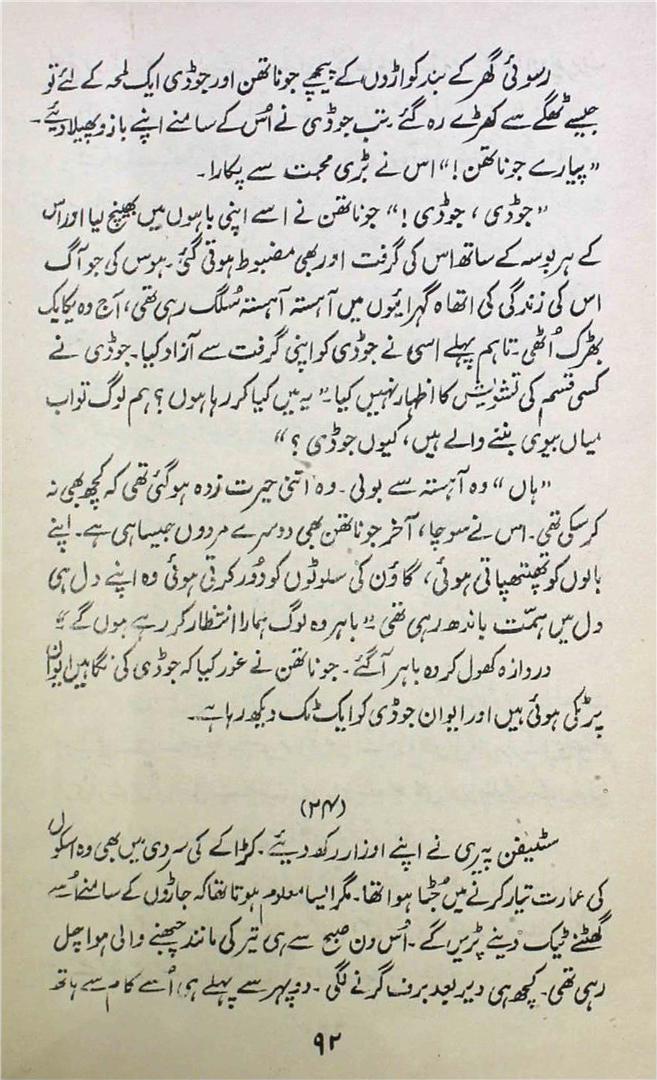 رسوئی گھر کے بند کواڑوں کے پیچھے جوناتھن اور جوڈی ایک لمحہ کے لئے تو
جیسے ٹھگے سے کھڑے رہ گئے۔ تب جوڈی نے اُس کے سامنے اپنے بازو پھیلا دیئے۔
”پیارے جوناتھن!“ اس نے بڑی محبت سے پکارا۔
”جوڈی، جوڈی!“ جوناتھن نے اسے اپنی باہوں میں بھینچ لیا اور اس
کے ہر بوسہ کے ساتھ اس کی گرفت اور بھی مضبوط ہوتی گئی۔ ہوس کی جو آگ
اس کی زندگی کی اتھاہ گہرائیوں میں آہستہ آہستہ سُلگ رہی تھی، آج وہ یکایک
بھڑک اُٹھی۔ تاہم پہلے اسی نے جوڈی کو اپنی گرفت سے آزاد کیا۔ جوڈی نے
کسی قسم کی تشویش کا اظہار نہیں کیا۔ ”یہ میں کیا کر رہا ہوں؟ ہم لوگ تو اب
میاں بیوی بننے والے ہیں، کیوں جوڈی؟“
”ہاں“ وہ آہستہ سے بولی۔ وہ اتنی حیرت زدہ ہو گئی تھی کہ کچھ بھی نہ
کر سکی تھی۔ اس نے سوچا، آخر جوناتھن بھی دوسرے مردوں جیسا ہی ہے۔ اپنے
بالوں کو تھپتھپاتی ہوئی، گاؤن کی سلوٹوں کو دُور کرتی ہوئی وہ اپنے دل ہی
دل میں ہمّت باندھ رہی تھی ”باہر وہ لوگ ہمارا انتظار کر رہے ہوں گے“
دروازہ کھول کر وہ باہر آ گئے۔ جوناتھن نے غور کیا کہ جوڈی کی نگاہیں ایوان
پر ٹکی ہوئی ہیں اور ایوان جوڈی کو ایک ٹک دیکھ رہا ہے۔
(۲۴)
سٹیفن پیری نے اپنے اوزار رکھ دیئے۔ کڑاکے کی سردی میں بھی وہ اسکول
کی عمارت تیار کرنے میں جُٹا ہوا تھا۔ مگر ایسا معلوم ہوتا تھا کہ جاڑوں کے سامنے اُسے
گھٹنے ٹیک دینے پڑیں گے۔ اُس دن صبح سے ہی تیر کی مانند چبھنے والی ہوا چل
رہی تھی۔ کچھ ہی دیر بعد برف گرنے لگی۔ دوپہر سے پہلے ہی اُسے کام سے ہاتھ
۹۲